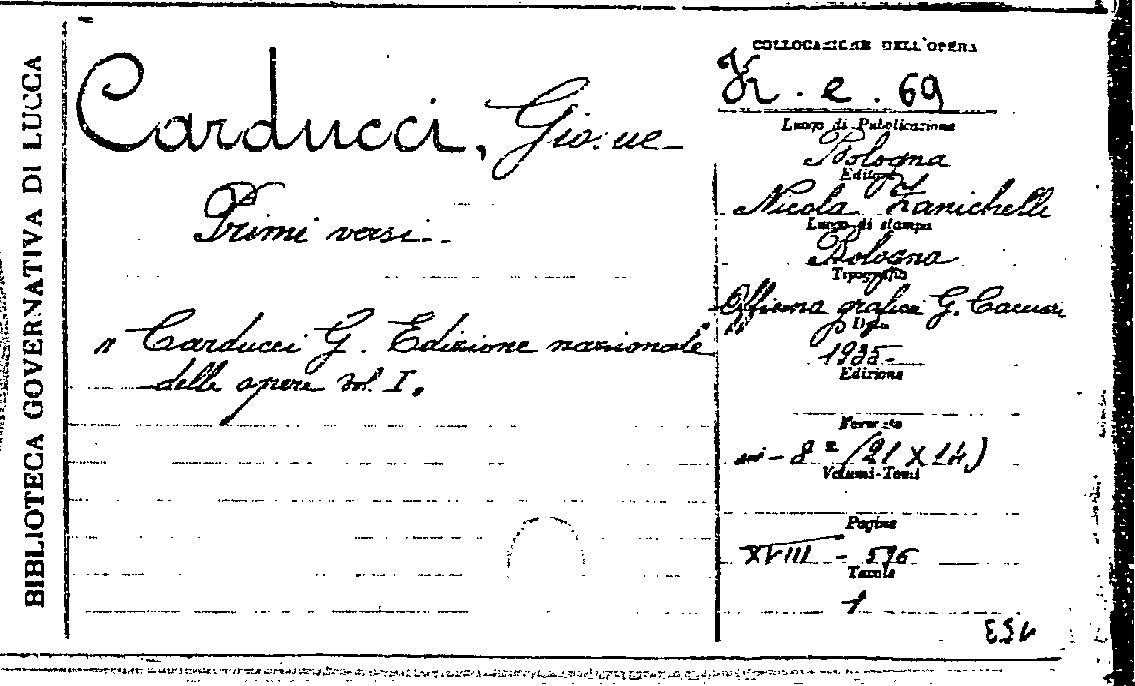 BIBLIOTECA GOVERNATIVA DI LUCCA
Carducci, Giosue
Primi versi
" Carducci G. Edizione nazionale
delle opere vol. I.
COLLOCAZIONE DELL'OPERA
K. e. 69
Luogo di Pubblicazione
Bologna
Editore
Nicola Zanichelli
Luogo di stampa
Bologna
Tipografia
Officina grafica G.
Data
1935-
Edizione
Formato
in-8º (21 X 14)
Volumi-Tomi
Pagine
XVIII - 576
Tavole
1